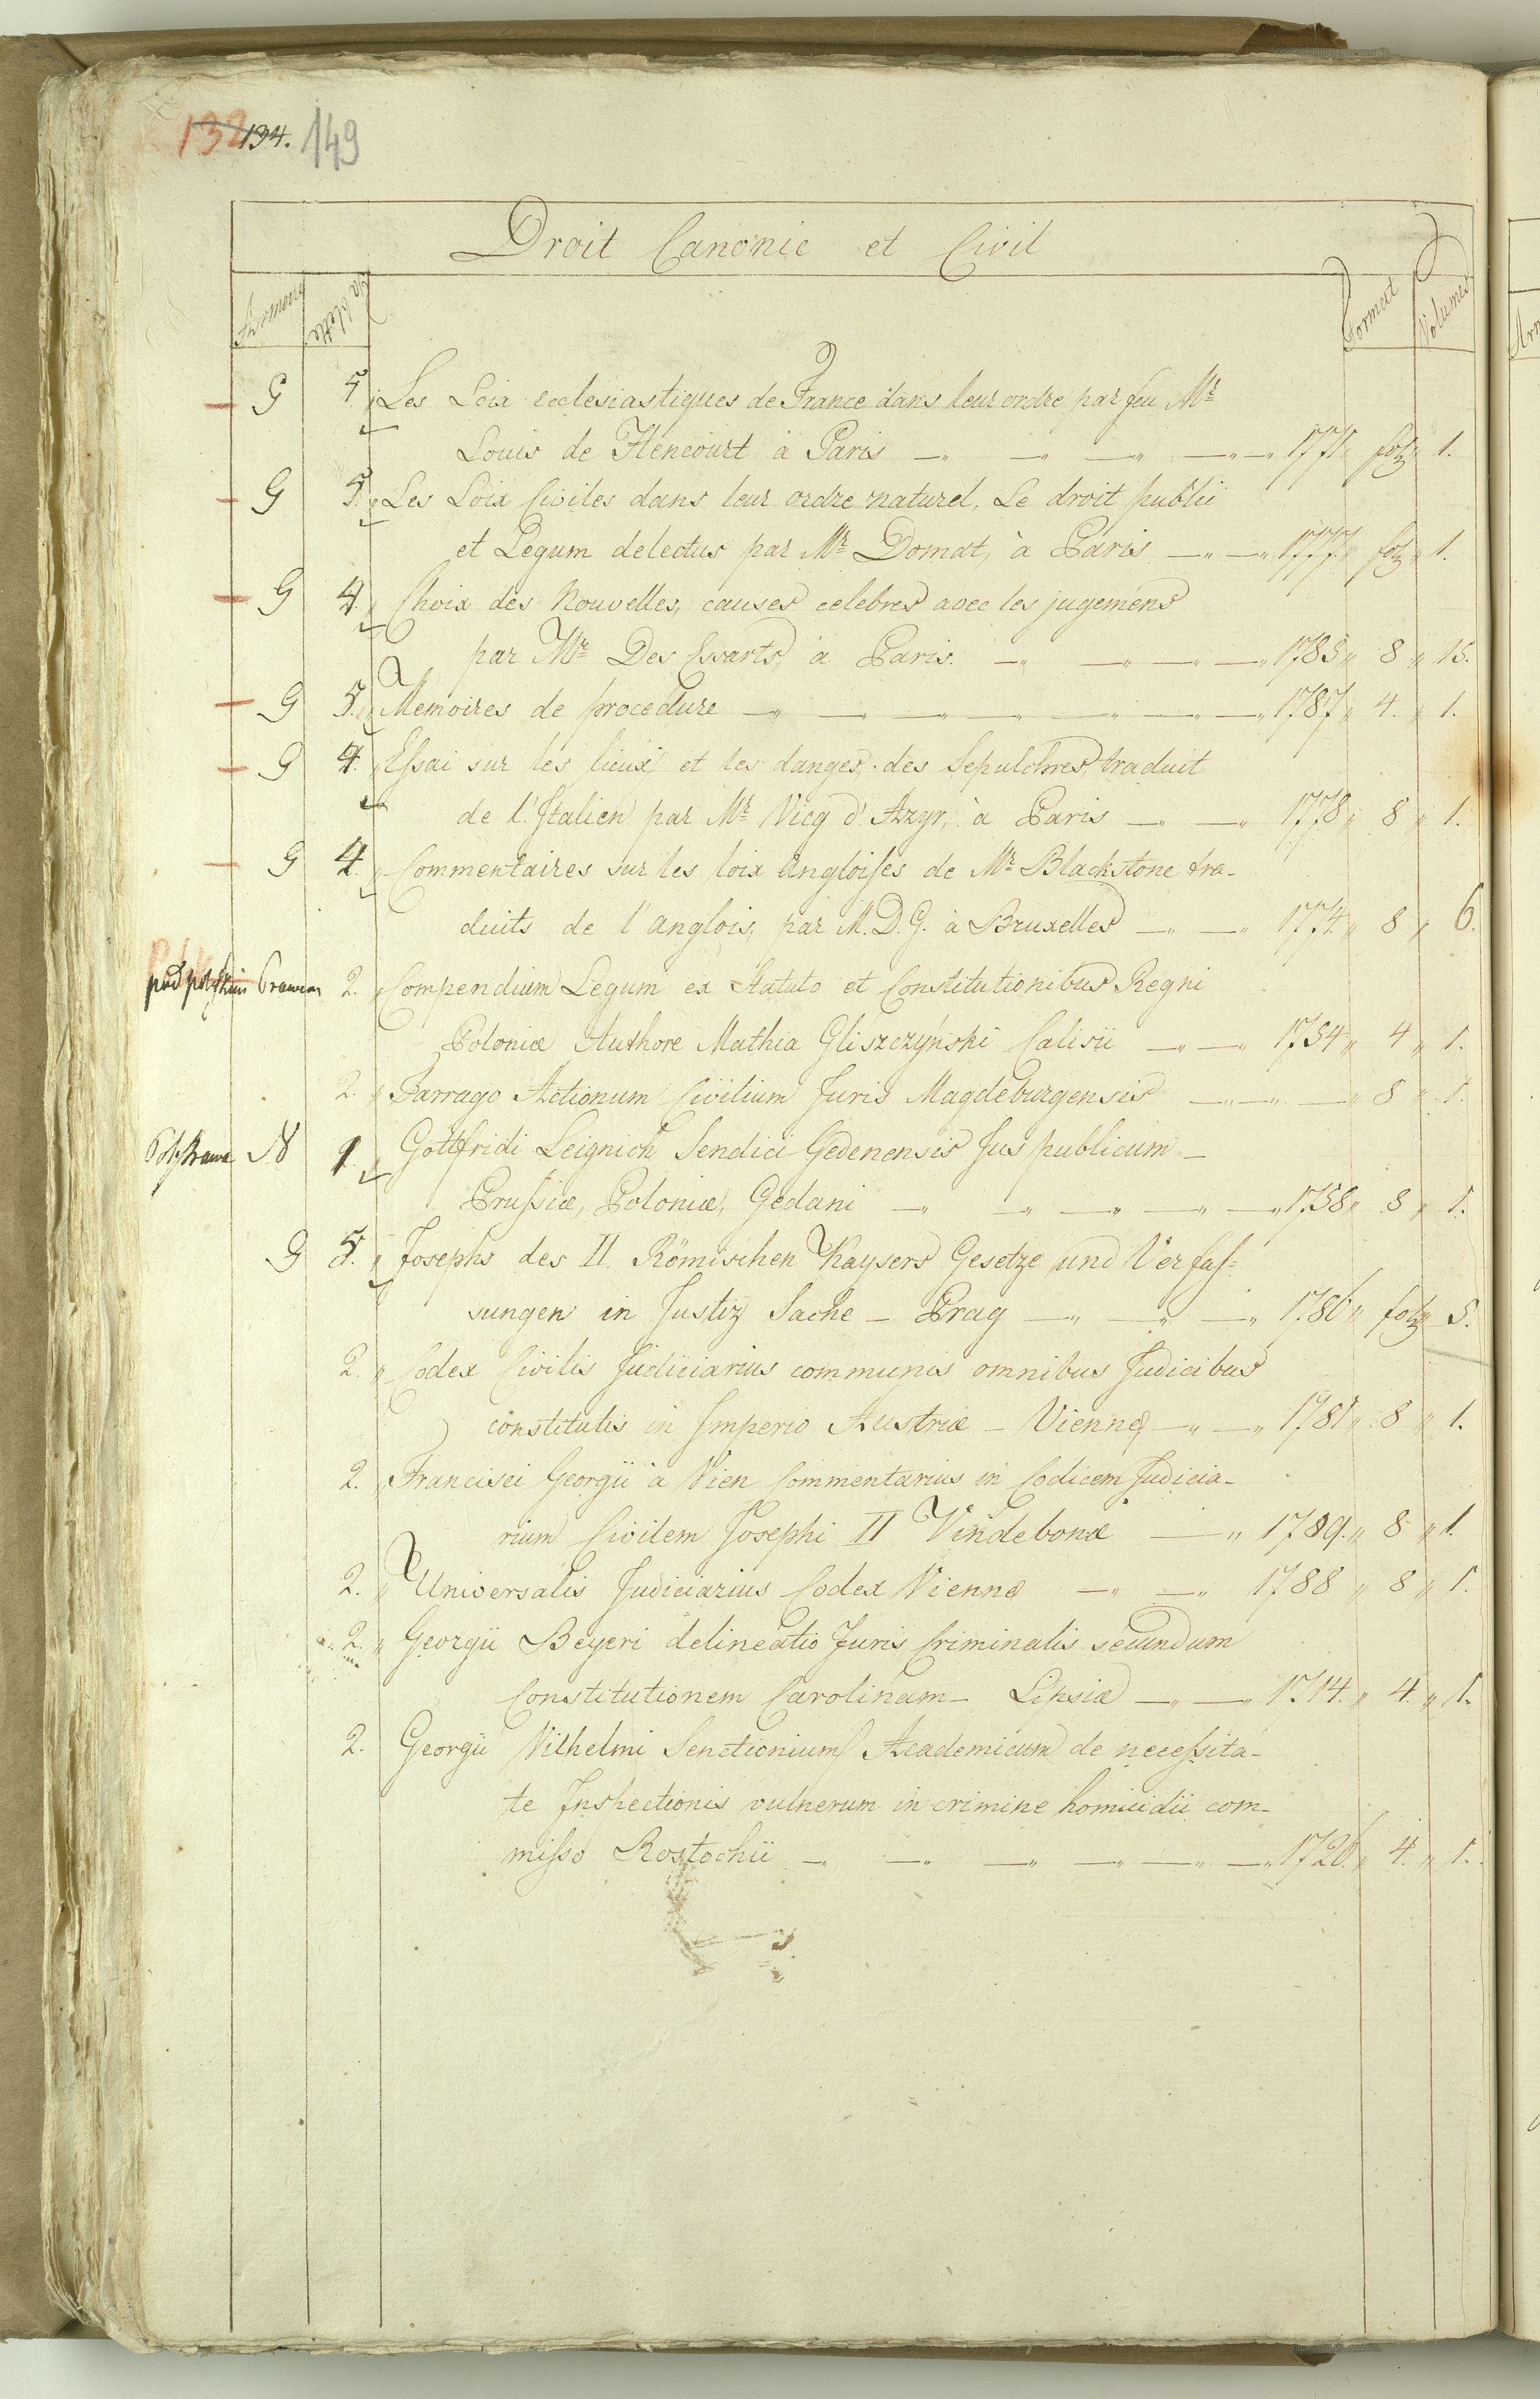 132 134. 149
Droit Canonic et Civil
Format Volumes
G 5. Les Loix ecclesiastiques de France dans leur ordre par feu Mr
Louis de Hencourt à Paris 1771 fol 1.
G 5. Les Loix Civiles dans leur ordre naturel, Le droit public
et Legum delectus par Mr Domat, à Paris 1777. fol 1.
G 4. Choix des Nouvelles, causes celebres avec les jugemens
par Mr Des Essarts, à Paris. 1785 8 15.
G 5. Memoires de procedure 1787 4. 1.
G 4. Essai sur les lieux et les danges, des Sepulchres, traduit
de l'Italien par Mr Vicq d'Azyr, à Paris 1778 8 1.
G 4. Commentaires sur les loix Angloises de Mr Blackstone tra-
duits de l'anglois, par M. D. G. à Bruxelles 1774 8 6.
2. Compendium Legum ex Statuto et Constitutionibus Regni
Poloniæ Authore Mathia Gliszczyński Calisii 1754 4 1.
2. Farrago Actionum Civilium Juris Magdeburgensis 8 1.
1. Gottfridi Leignich Sendici Gedenensis Jus publicum -
Prussiæ, Poloniæ, Gedani 1758 8 1.
G 5. Josephs des II. Römischen Kaysers Gesetze und Verfas-
sungen in Justiz Sache - Prag 1786 fol 5.
2. Codex Civilis Judiciarius communis omnibus Judicibus
constitutis in Imperio Austriæ - Viennæ 1781 8 1.
2. Francisci Georgii à Vien Commentarius in Codicem Judicia-
rium Civilem Josephi II Vindebonæ 1789. 8 1.
2. Universalis Judiciarius Codex Viennæ 1788 8 1.
2. Georgii Beyeri delineatio Juris Criminalis secundum
Constitutionem Carolinam - Lipsiæ 1714. 4. 1.
2. Georgii Vilhelmi Academicum de necessita-
te Inspectionis vulnerum in crimine homicidii com-
misso Rostochii 1726. 4. 1.